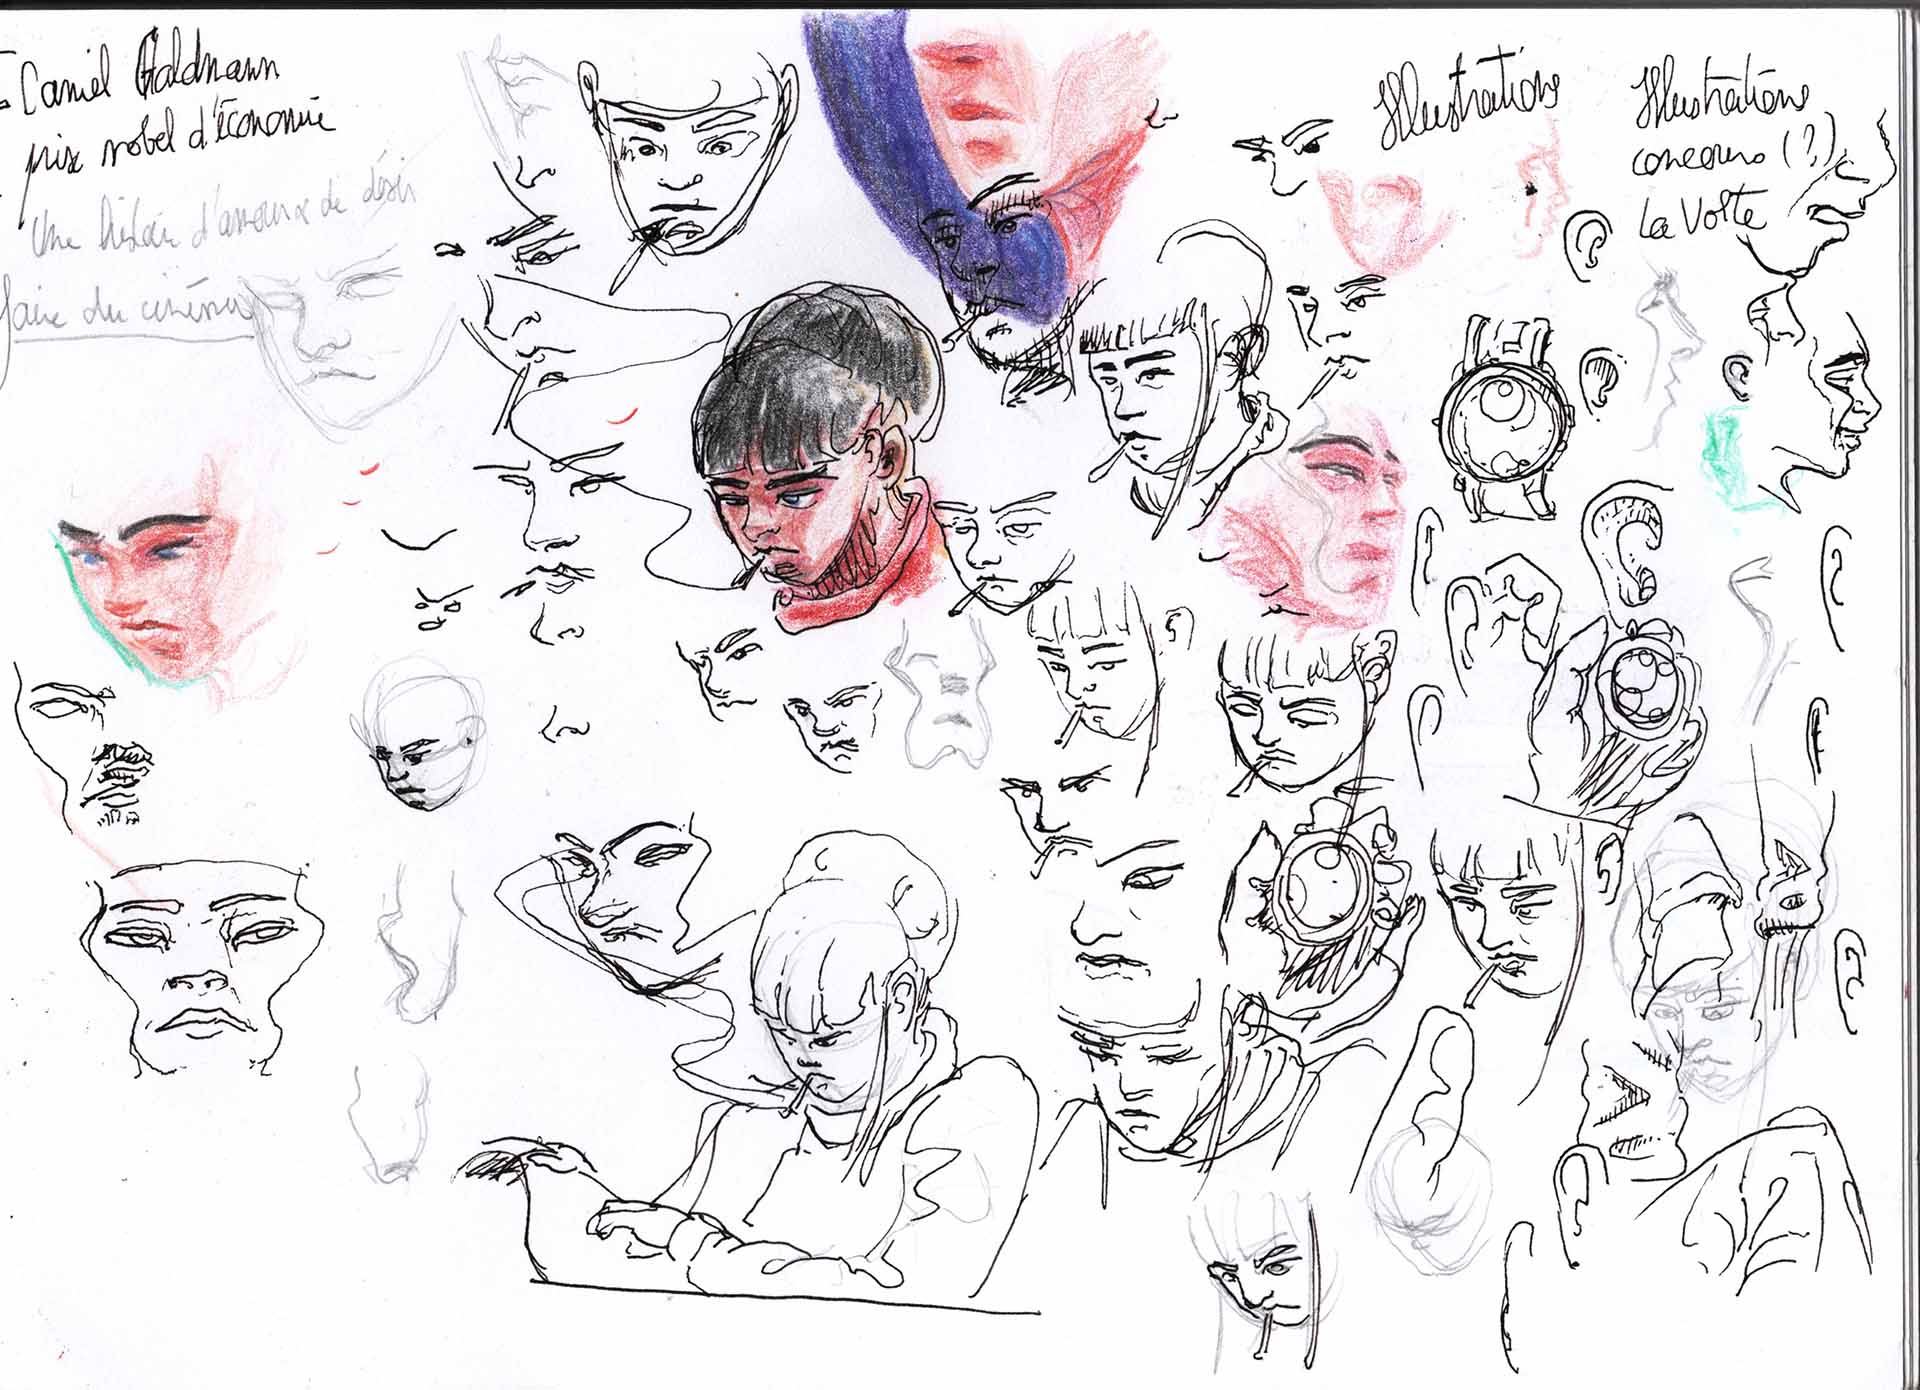 Daniel Haldmann
prix nobel d'économie
Une histoire d'amour de désir
faire du cinéma
Illustrations
Illustrations
concours (?)
La Volte